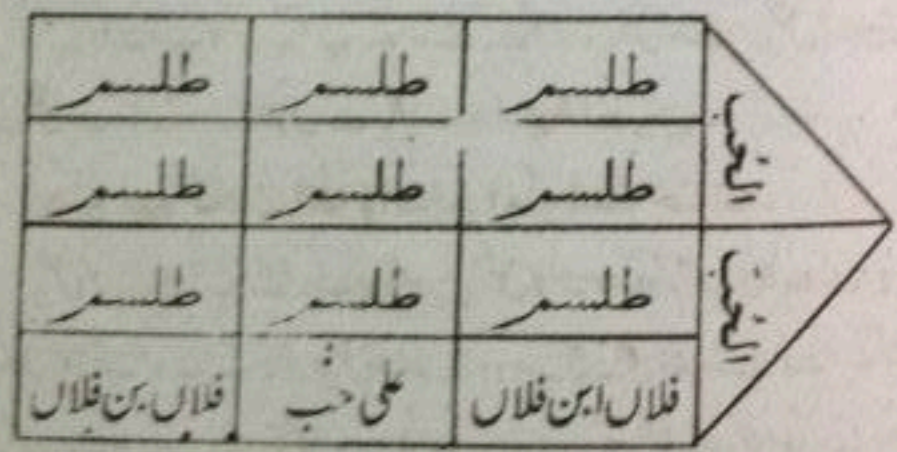 طلسم طلسم طلسم
طلسم طلسم طلسم
طلسم طلسم طلسم
فلاں ابن فلاں علی حب فلاں بن فلاں
الحب
الحب